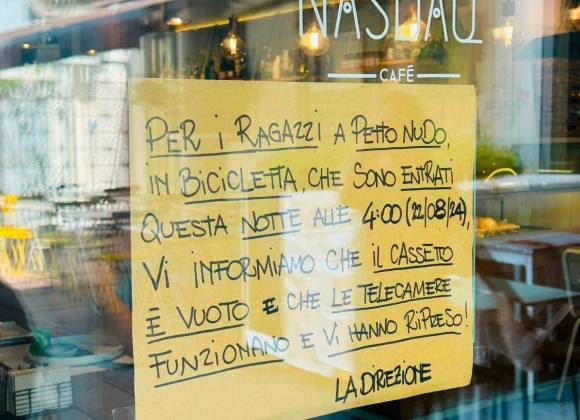 NASDAQ
CAFÉ
PER i RAGAZZI A PETTO NUDO,
iN BiCiCLETTA, CHE SONO ENTRATI
QUESTA NOTTE ALLE 4:00 (22/08/24),
Vi INFORMIAMO CHE iL CASSETO
È VUOTO E CHE LE TELECAMERE
FUNZIONANO E Vi HANNO RiPRESO!
LA DIREZIONE